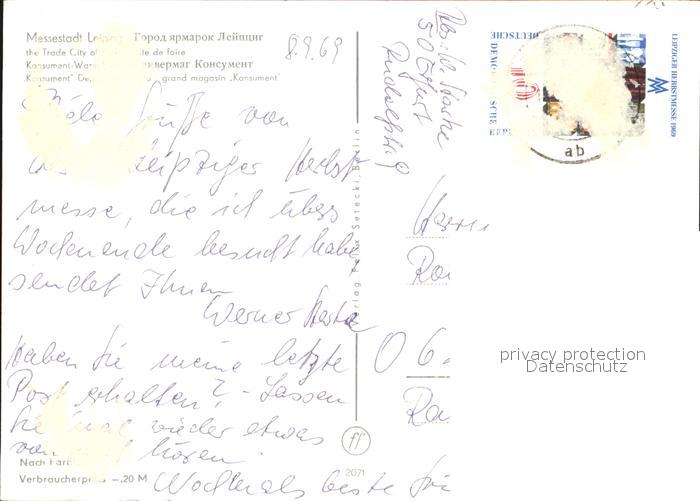 Messestadt Leipzig Город ярмарок Лейпциг
the Trade City of de foire
Konsument-Waren вермаг Консумент
„Konsument" De grand magasin „Konsument"
8.9.69
50 Erfurt
Viele Grüße von
der Leipziger Herbst
messe, die ich übers
Wochenende besucht habe
sendet Ihnen
Werner
Haben Sie meine letzte
Post erhalten? – Lassen
Sie mal wieder etwas
von sich hören.
Nochmals beste Grü
Nach Farb
Verbraucherpreis –,20 M
Verlag Felix Setecki, Berlin
ff
2071
DEUTSCHE
DEMO SCHE
REPU
10
LEIPZIGER HERBSTMESSE 1969
ab
Herrn
O 6
privacy protection
Datenschutz